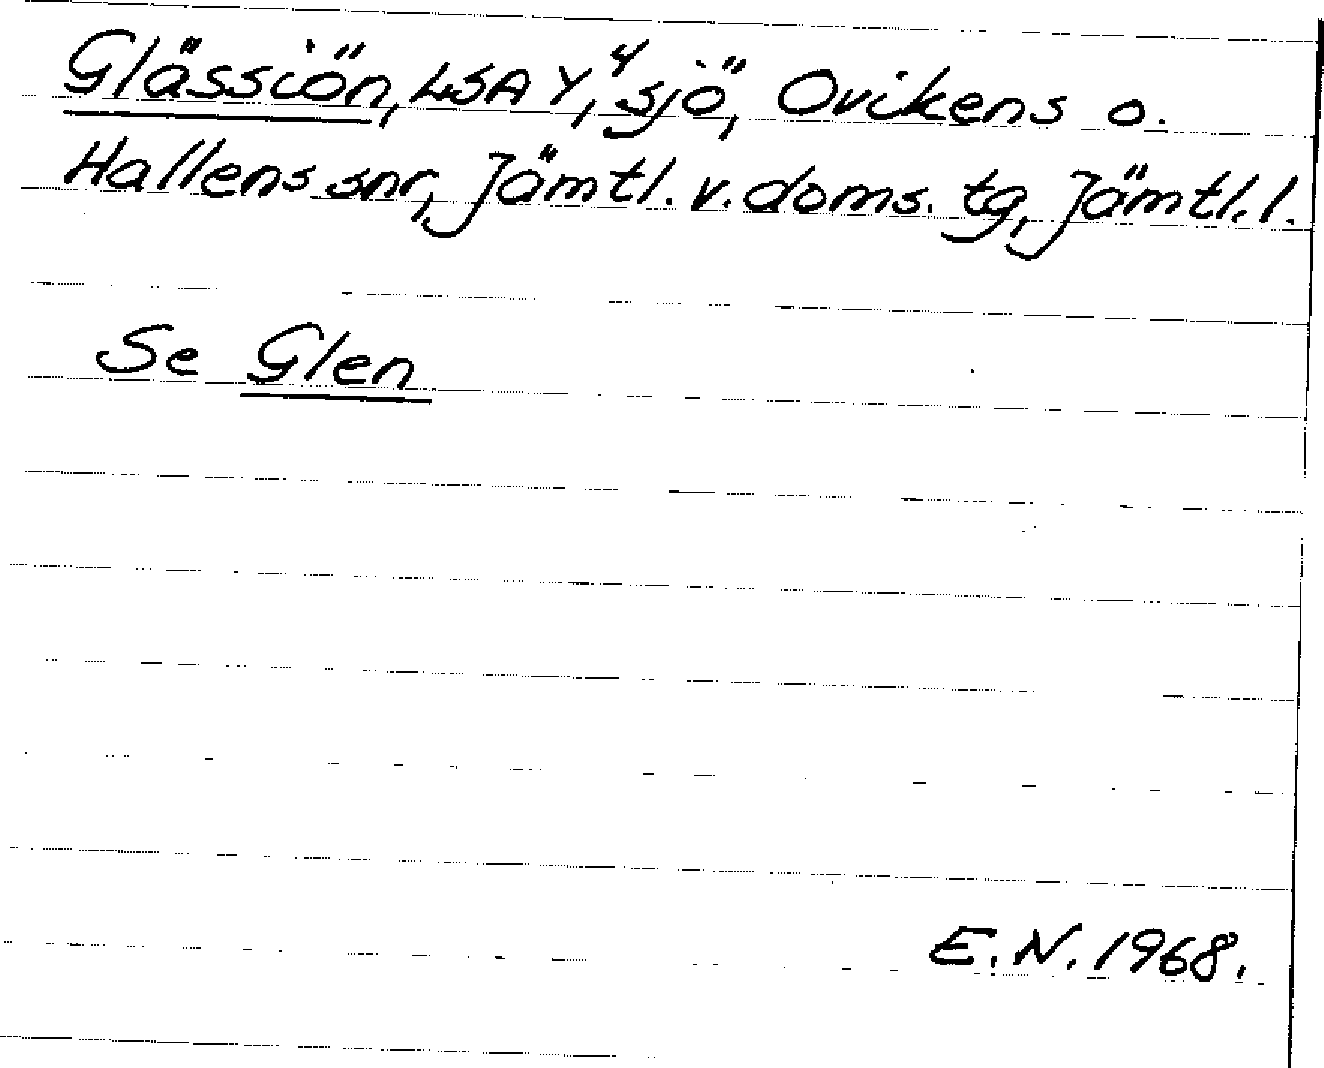 Glässiön, LSA Y, 4 sjö, Ovikens o.
Hallens snr, Jämtl. v. doms. tg, Jämtl. l.
Se Glen
E.N. 1968.